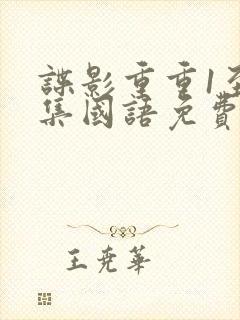 諜影重重1至
集國語免費
王堯華